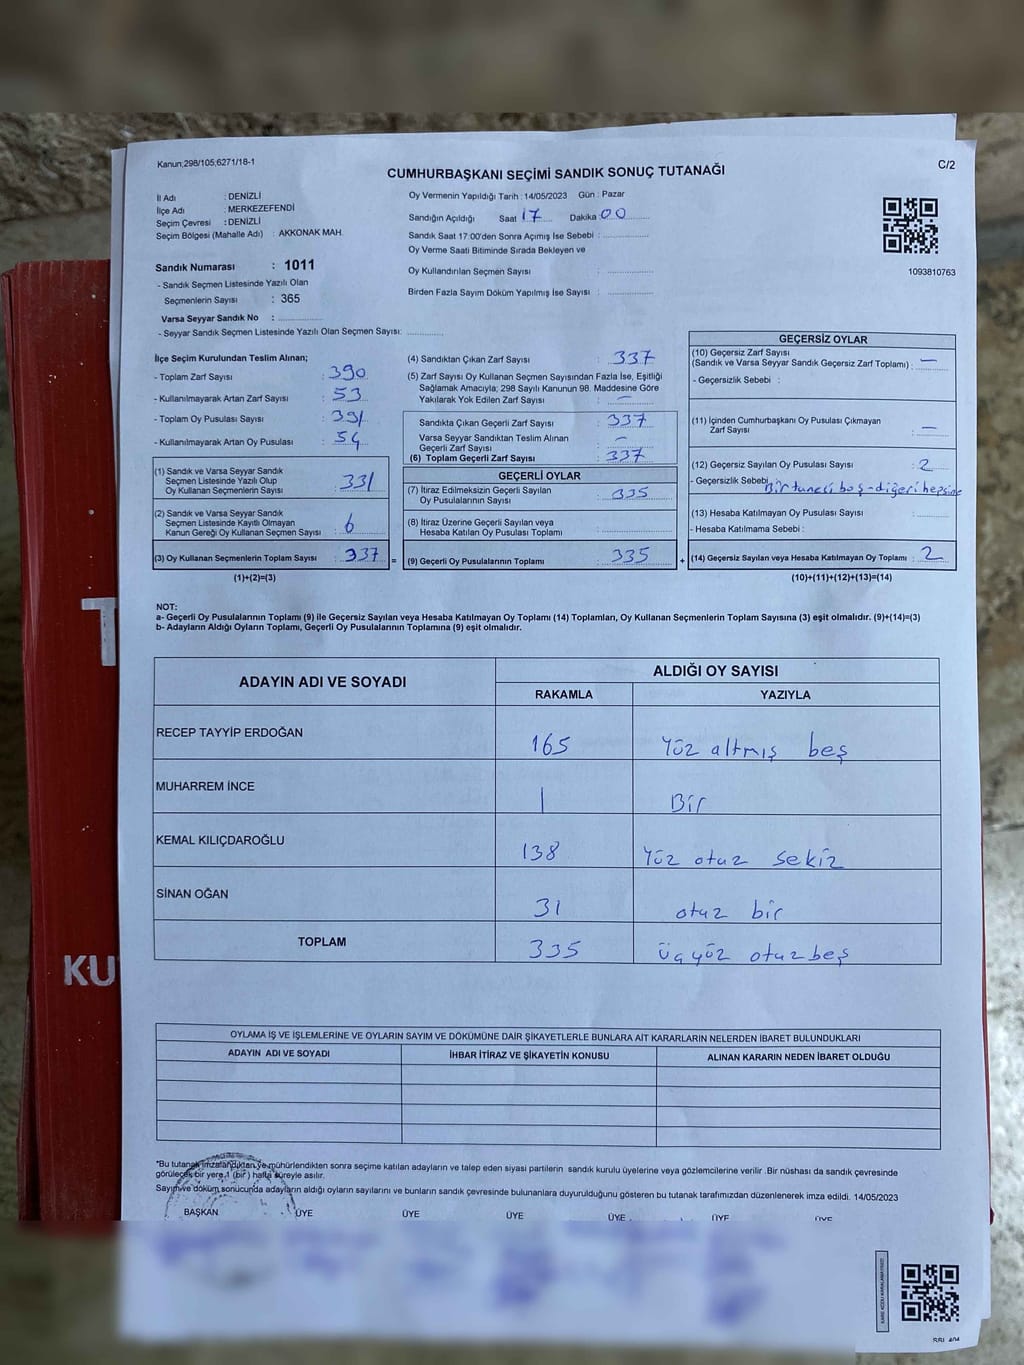 Kanun;298/105;6271/18-1
C/2
CUMHURBAŞKANI SEÇİMİ SANDIK SONUÇ TUTANAĞI
İl Adı : DENİZLİ
İlçe Adı : MERKEZEFENDİ
Seçim Çevresi : DENİZLİ
Seçim Bölgesi (Mahalle Adı) : AKKONAK MAH.
Sandık Numarası : 1011
- Sandık Seçmen Listesinde Yazılı Olan
Seçmenlerin Sayısı : 365
Varsa Seyyar Sandık No :
- Seyyar Sandık Seçmen Listesinde Yazılı Olan Seçmen Sayısı:
Oy Vermenin Yapıldığı Tarih : 14/05/2023 Gün : Pazar
Sandığın Açıldığı Saat 17 Dakika 00
Sandık Saat 17:00'den Sonra Açımış İse Sebebi :
Oy Verme Saati Bitiminde Sırada Bekleyen ve
Oy Kullandırılan Seçmen Sayısı :
Birden Fazla Sayım Döküm Yapılmış İse Sayısı :
1093810763
İlçe Seçim Kurulundan Teslim Alınan;
- Toplam Zarf Sayısı : 390
- Kullanılmayarak Artan Zarf Sayısı : 53
- Toplam Oy Pusulası Sayısı : 391
- Kullanılmayarak Artan Oy Pusulası : 54
(1) Sandık ve Varsa Seyyar Sandık
Seçmen Listesinde Yazılı Olup
Oy Kullanan Seçmenlerin Sayısı : 331
(2) Sandık ve Varsa Seyyar Sandık
Seçmen Listesinde Kayıtlı Olmayan
Kanun Gereği Oy Kullanan Seçmen Sayısı : 6
(3) Oy Kullanan Seçmenlerin Toplam Sayısı : 337 =
(1)+(2)=(3)
(4) Sandıktan Çıkan Zarf Sayısı : 337
(5) Zarf Sayısı Oy Kullanan Seçmen Sayısından Fazla İse, Eşitliği
Sağlamak Amacıyla; 298 Sayılı Kanunun 98. Maddesine Göre
Yakılarak Yok Edilen Zarf Sayısı : –
Sandıkta Çıkan Geçerli Zarf Sayısı : 337
Varsa Seyyar Sandıktan Teslim Alınan
Geçerli Zarf Sayısı : –
(6) Toplam Geçerli Zarf Sayısı : 337
GEÇERLİ OYLAR
(7) İtiraz Edilmeksizin Geçerli Sayılan
Oy Pusulalarının Sayısı : 335
(8) İtiraz Üzerine Geçerli Sayılan veya
Hesaba Katılan Oy Pusulası Toplamı :
(9) Geçerli Oy Pusulalarının Toplamı : 335 +
GEÇERSİZ OYLAR
(10) Geçersiz Zarf Sayısı
(Sandık ve Varsa Seyyar Sandık Geçersiz Zarf Toplamı) : –
- Geçersizlik Sebebi :
(11) İçinden Cumhurbaşkanı Oy Pusulası Çıkmayan
Zarf Sayısı : –
(12) Geçersiz Sayılan Oy Pusulası Sayısı : 2
- Geçersizlik Sebebi Bir tanesi boş-diğeri hepsine
(13) Hesaba Katılmayan Oy Pusulası Sayısı :
- Hesaba Katılmama Sebebi :
(14) Geçersiz Sayılan veya Hesaba Katılmayan Oy Toplamı : 2
(10)+(11)+(12)+(13)=(14)
NOT:
a- Geçerli Oy Pusulalarının Toplamı (9) ile Geçersiz Sayılan veya Hesaba Katılmayan Oy Toplamı (14) Toplamları, Oy Kullanan Seçmenlerin Toplam Sayısına (3) eşit olmalıdır. (9)+(14)=(3)
b- Adayların Aldığı Oyların Toplamı, Geçerli Oy Pusulalarının Toplamına (9) eşit olmalıdır.
ADAYIN ADI VE SOYADI
ALDIĞI OY SAYISI
RAKAMLA YAZIYLA
RECEP TAYYİP ERDOĞAN 165 Yüz altmış beş
MUHARREM İNCE 1 Bir
KEMAL KILIÇDAROĞLU 138 Yüz otuz sekiz
SİNAN OĞAN 31 otuz bir
TOPLAM 335 üçyüz otuzbeş
OYLAMA İŞ VE İŞLEMLERİNE VE OYLARIN SAYIM VE DÖKÜMÜNE DAİR ŞİKAYETLERLE BUNLARA AİT KARARLARIN NELERDEN İBARET BULUNDUKLARI
ADAYIN ADI VE SOYADI İHBAR İTİRAZ VE ŞİKAYETİN KONUSU ALINAN KARARIN NEDEN İBARET OLDUĞU
*Bu tutanak imzalandıktan ve mühürlendikten sonra seçime katılan adayların ve talep eden siyasi partilerin sandık kurulu üyelerine veya gözlemcilerine verilir .Bir nüshası da sandık çevresinde
görülecek bir yere 1 (bir) hafta süreyle asılır.
Sayım ve döküm sonucunda adayların aldığı oyların sayılarını ve bunların sandık çevresinde bulunanlara duyurulduğunu gösteren bu tutanak tarafımızdan düzenlenerek imza edildi. 14/05/2023
BAŞKAN ÜYE ÜYE ÜYE ÜYE ÜYE ÜYE
T
KU